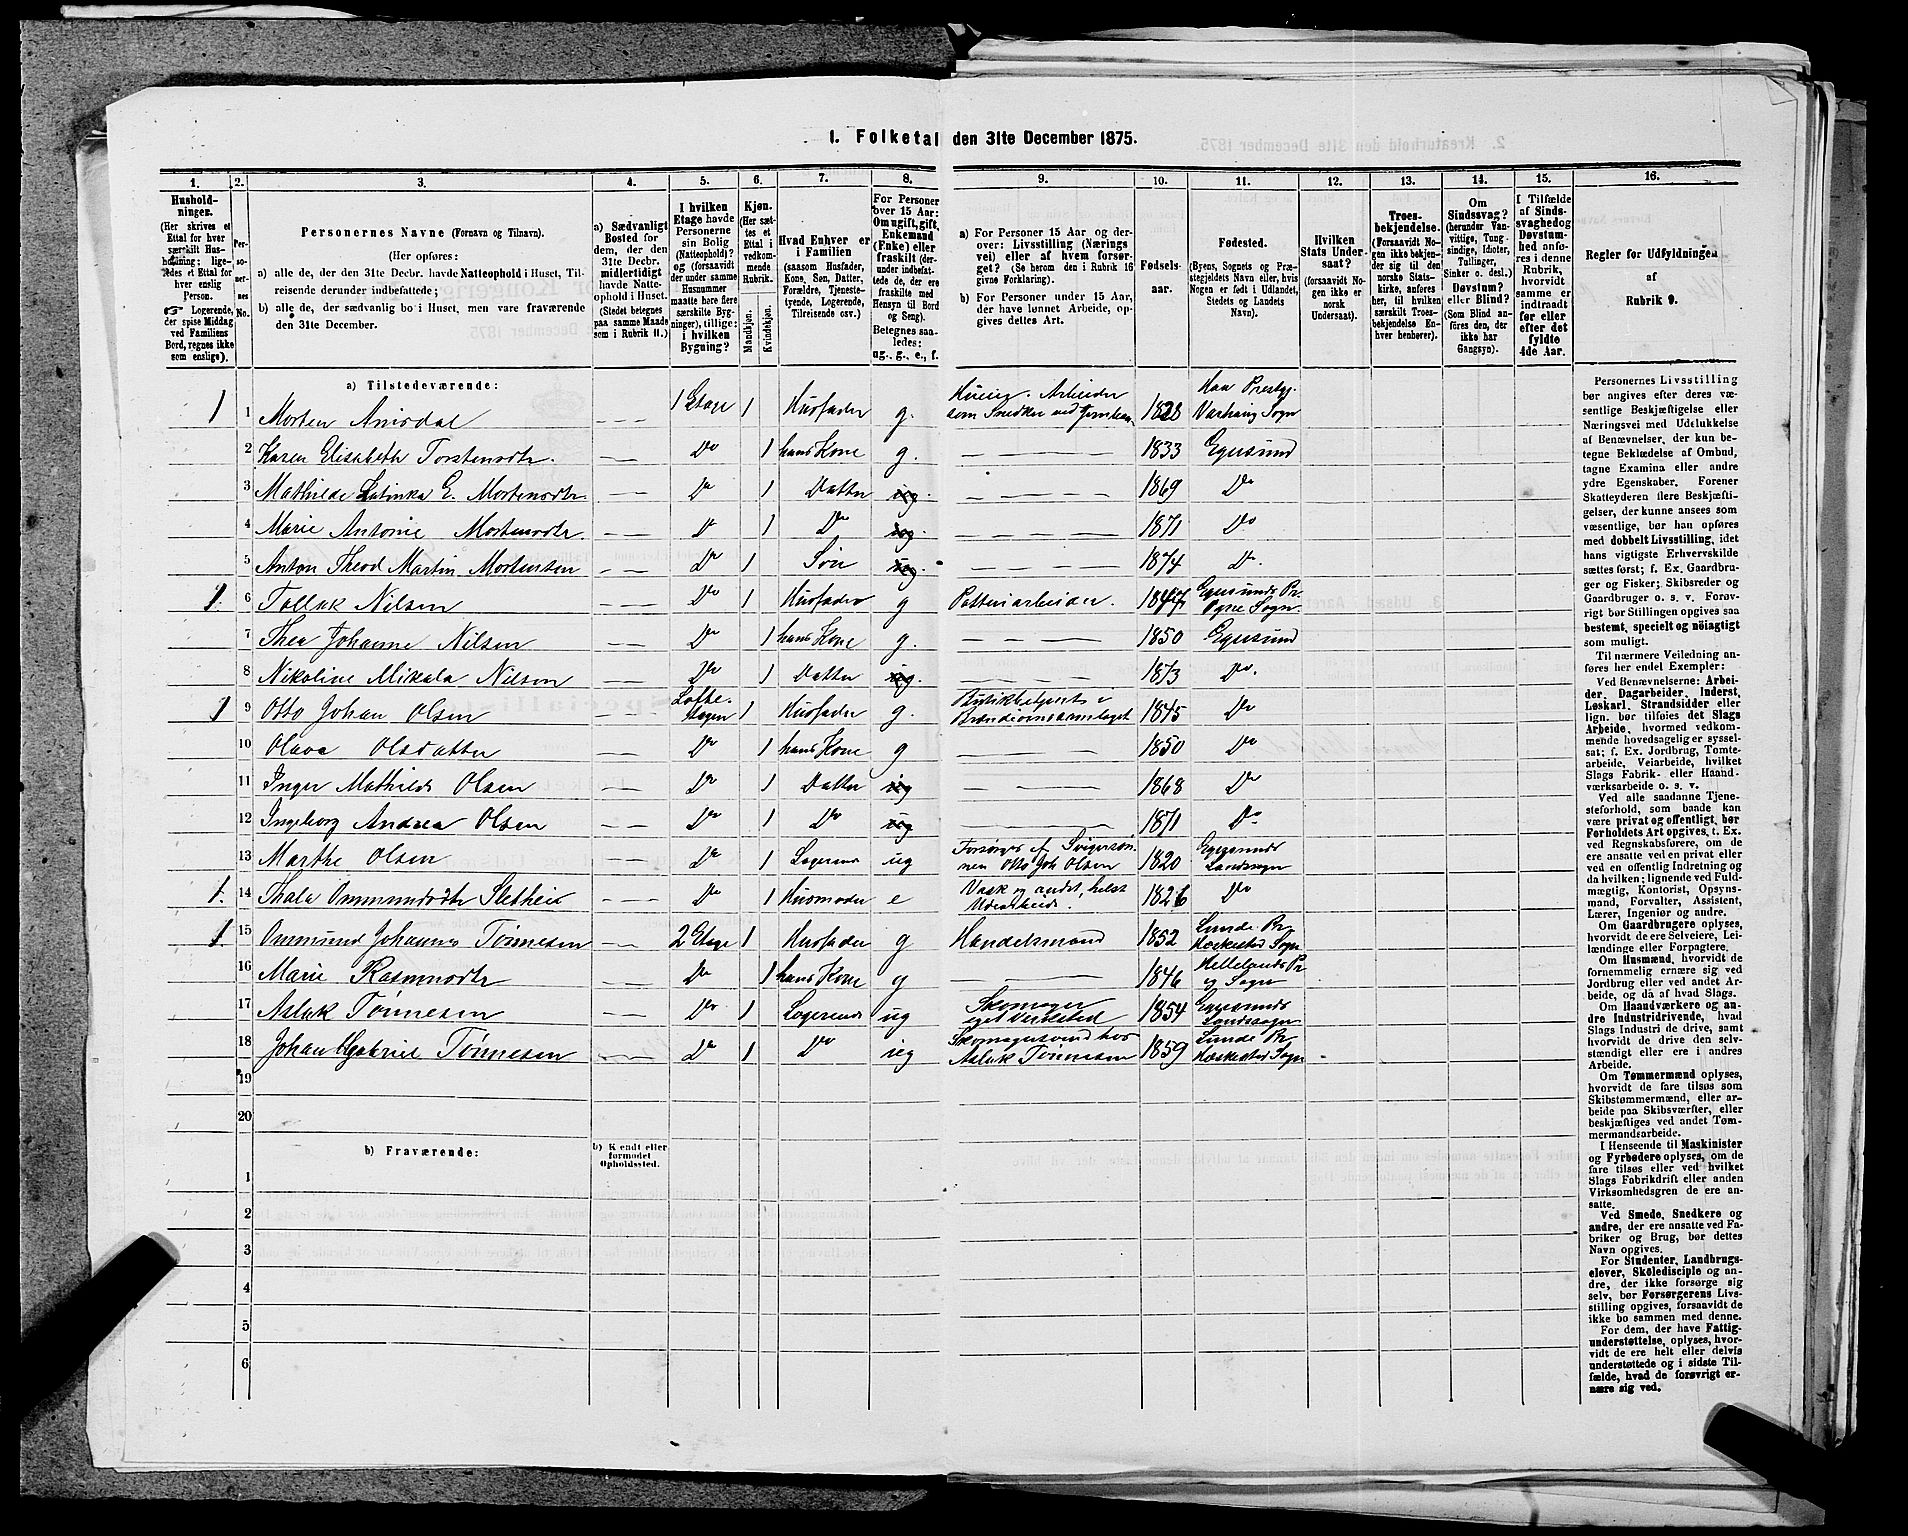 1. Folketal den 31te December 1875.
1.
2.
3.
4.
5.
6.
7.
8.
9.
10.
11.
12.
13.
14.
15.
16.
Husholdninger.
(Her skrives et
Ettal for hver
særskilt Husholdning;
ligeledes et Ettal for
hver enslig
Person.
Logerende,
der spise Middag
ved Familiens
Bord, regnes ikke
som enslige).
Personernes No.
Personernes Navne (Fornavn og Tilnavn).
(Her opføres:
a) alle de, der den 31te Decbr. havde Natteophold i Huset, Tilreisende derunder indbefattede;
b) alle de, der sædvanlig bo i Huset, men vare fraværende
den 31te December.
a) Sædvanligt
Bosted for
dem, der den
31te Decbr.
midlertidigt
havde Natteophold
i Huset.
(Stedet betegnes
paa samme Maade
som i Rubrik 11.)
I hvilken
Etage havde
Personerne
sin Bolig
(Natteophold)?
og (forsaavidt
der under samme
Husnummer
maatte høre flere
særskilte Bygninger),
tillige:
i hvilken
Bygning?
Kjøn.
(Her sættes
et Ettal i
vedkommende
Rubrik.
Mandkjøn.
Kvindekjøn.
Hvad Enhver er
i Familien
(saasom Husfader,
Kone, Søn, Datter,
Forældre, Tjenestetyende,
Logerende,
Tilreisende osv.)
For Personer
over 15 Aar:
Om ugift, gift,
Enkemand
(Enke) eller
fraskilt (derunder
indbefattede
de, der ere
fraskilte med
Hensyn til Bord
og Seng).
Betegnes saaledes:
ug., g., e., f.
a) For Personer 15 Aar og derover:
Livsstilling (Nærings
vei) eller af hvem forsørget?
(Se herom den i Rubrik 16
givne Forklaring).
b) For Personer under 15 Aar,
der have lønnet Arbeide, opgives
dettes Art.
Fødselsaar.
Fødested.
(Byens, Sognets og Præstegjeldets
Navn eller, hvis
Nogen er født i Udlandet,
Stedets og Landets
Navn).
Hvilken
Stats Undersaat?
(forsaavidt Nogen
ikke er
norsk
Undersaat).
Troesbekjendelse.
(Forsaavidt Nogen
ikke bekjender
sig til den
norske Statskirke,
anføres
her, til hvilken
særskilt Troesbekjendelse
Enhver
henhører).
Om
Sindssvag?
(herunder Vanvittige,
Tungsindige,
Idioter,
Tullinger,
Sinker o. desl.)
Døvstum?
eller Blind?
(Som Blind anføres
den, der
ikke har
Gangsyn).
I Tilfælde
af Sindssvaghed
og
Døvstumhed
anføres
i denne
Rubrik,
hvorvidt
samme er
indtraadt
før eller
efter det
fyldte
4de Aar.
Regler for Udfyldningen
af
Rubrik 9.
a) Tilstedeværende:
1 1 Morten Amodal — 1 Etage 1 Husfader g. som Snedker ved 1828 Haa Prestg. Varhaug Sogn
2 Karen Elisabeth Torstensdtr. — Do 1 hans Kone g. — 1833 Egersund
3 Mathilde Latinka E. Mortensdtr. — Do 1 Datter ug. — 1869 Do
4 Marie Antonie Mortensdtr — Do 1 Do ug. — 1871 Do
5 Anton Theod Martin Mortensen — Do 1 Søn ug. — 1874 Do.
1. 6 Tollak Nilsen — Do 1 Husfader g Potteriarbeider. 1847 Egersunds Pr. Ogne Sogn.
7 Thea Johanne Nilsen — Do 1 hans Kone g. — 1850 Egersund
8 Nikoline Mikala Nilsen — Do 1 Datter ug. — 1873 Do.
1 9 Otto Johan Olsen — Lofts-etagen 1 Husfader g. Butikbetjent i Brændevinssamlaget 1845 Do
10 Olava Olsdatter — Do 1 hans Kone g — 1850 Do
11 Inger Mathilde Olsen — Do 1 Datter ug — 1868 Do
12 Ingeborg Andrea Olsen — Do 1 Do ug — 1871 Do
13 Marthe Olsen — Do 1 Logerende ug Forsørges af Svigersønnen Otto Joh Olsen 1820 Egersunds Landsogn
1. 14 Thala Ommundsdtr Sletheis — Do 1 Husmoder e Vask og andet, helst Udearbeide! 1826 Do
1 15 Ommund Johannes Tønnesen — 2 Etage 1 Husfader g Handelsmand 1852 Lunde Pr. Heskestad Sogn
16 Marie Rasmusdtr — Do 1 hans Kone g — 1846 Hellelands Pr og Sogn
17 Aslak Tønnesen — Do 1 Logerende ug Skomager eget Verksted 1854 Egersunds Landsogn
18 Johan Gabriel Tønnesen — Do 1 Do ug Skomagersvend hos Aslak Tønnesen 1859 Lunde Pr Heskestad Sogn
19
20
b) Fraværende:
b) Kjendt eller
formodet
Opholdssted.
1
2
3
4
5
6
Personernes Livsstilling
bør angives efter deres væsentlige
Beskjæftigelse eller
Næringsvei med Udelukkelse
af Benævnelser, der kun betegne
Beklædelse af Ombud,
tagne Examina eller andre
ydre Egenskaber. Forener
Skatteyderen flere Beskjæftigelser,
der kunne ansees som
væsentlige, bør han opføres
med dobbelt Livsstilling, idet
hans vigtigste Erhvervskilde
sættes først; f. Ex. Gaardbruger
og Fisker; Skibsreder og
Gaardbruger o. s. v. Forøvrigt
bør Stillingen opgives saa
bestemt, specielt og nöiagtigt
som muligt.
Til nærmere Veiledning anføres
her endel Exempler:
Ved Benævnelserne: Arbeider,
Dagarbeider, Inderst,
Løskarl, Strandsidder eller
lign. bør tilføies det Slags
Arbeide, hvormed vedkommende
hovedsagelig er sysselsat;
f. Ex. Jordbrug, Tomtearbeide,
Veiarbeide, hvilket
Slags Fabrik- eller Haandværksarbeide
o. s. v.
Ved alle saadanne Tjenesteforhold,
som baade kan
være privat og offentligt, bør
Forholdets Art opgives, t. Ex.
ved Regnskabsførere, om de
ere ansatte ved en privat eller
en offentlig Indretning og
da hvilken; lignende ved Fuldmægtig,
Kontorist, Opsynsmand,
Forvalter, Assistent,
Lærer, Ingeniør og andre.
Om Gaardbrugere oplyses,
hvorvidt de ere Selveiere, Leilændinge
eller Forpagtere.
Om Husmænd, hvorvidt de
fornemmelig ernære sig ved
Jordbrug eller ved andet Arbeide,
og da af hvad Slags.
Om Haandværkere og andre
Industridrivende, hvad
Slags Industri de drive, samt
hvorvidt de drive den selvstændigt
eller ere i andres
Arbeide.
Om Tømmermænd oplyses,
hvorvidt de fare tilsøs som
Skibstømmermænd, eller arbeide
paa Skibsværfter, eller
beskjæftiges ved andet Tømmermandsarbeide.
I Henseende til Maskinister
og Fyrbødere oplyses, om de
fare tilsøs eller ved hvilket
Slags Fabrikdrift eller anden
Virksomhedsgren de ere ansatte.
Ved Smede, Snedkere og
andre, der ere ansatte ved Fabriker
og Brug, bør dettes
Navn opgives.
For Studenter, Landbrugselever,
Skoledisciple og andre,
der ikke forsørge sig
selv, bør Forsørgerens Livsstilling
opgives, forsaavidt de
ikke bo sammen med denne.
For dem, der have Fattigunderstøttelse,
oplyses, hvorvidt
de ere helt eller delvis
understøttede og i sidste Tilfælde,
hvad de forøvrigt ernære
sig ved.